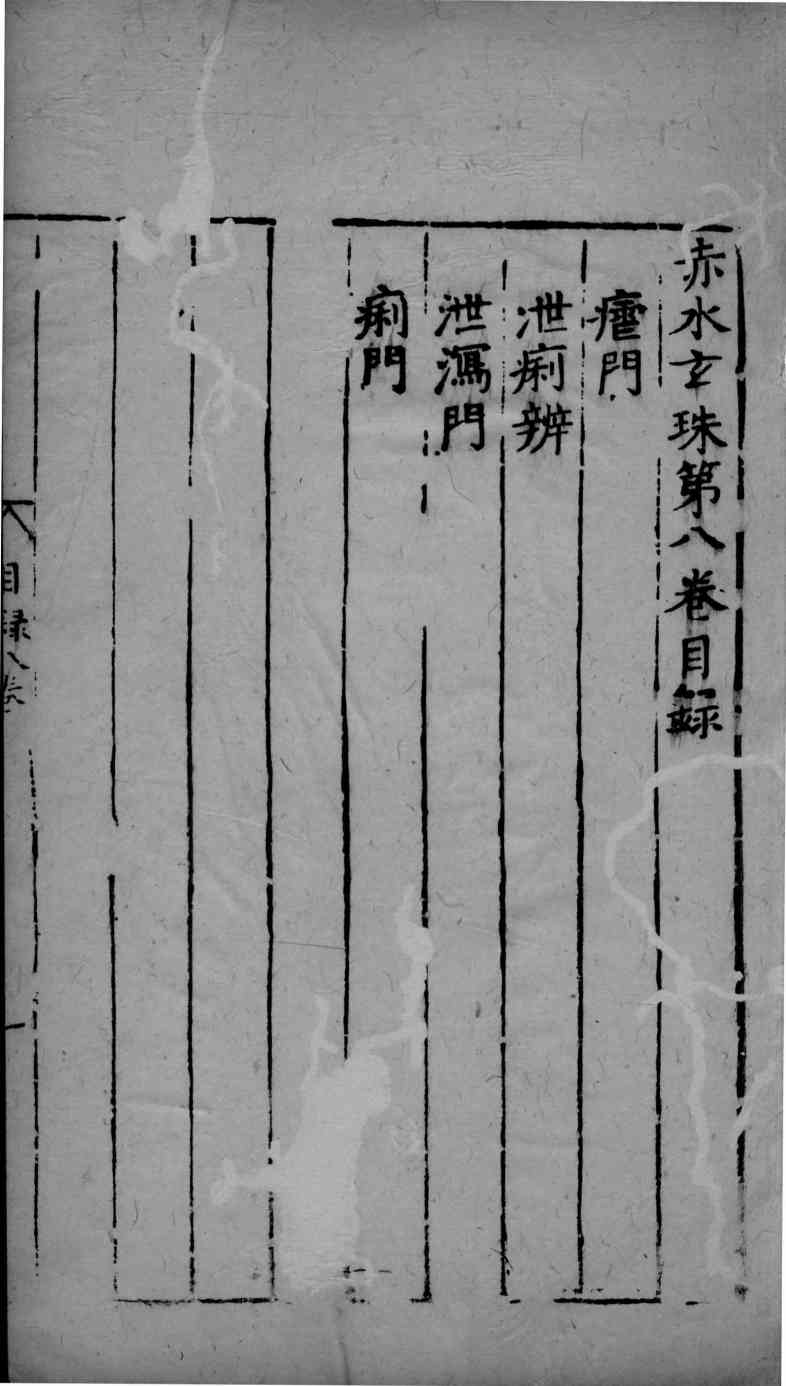 赤水玄珠第八卷目録
瘧門
泄痢辨
泄瀉門
痢門
目録八卷
一